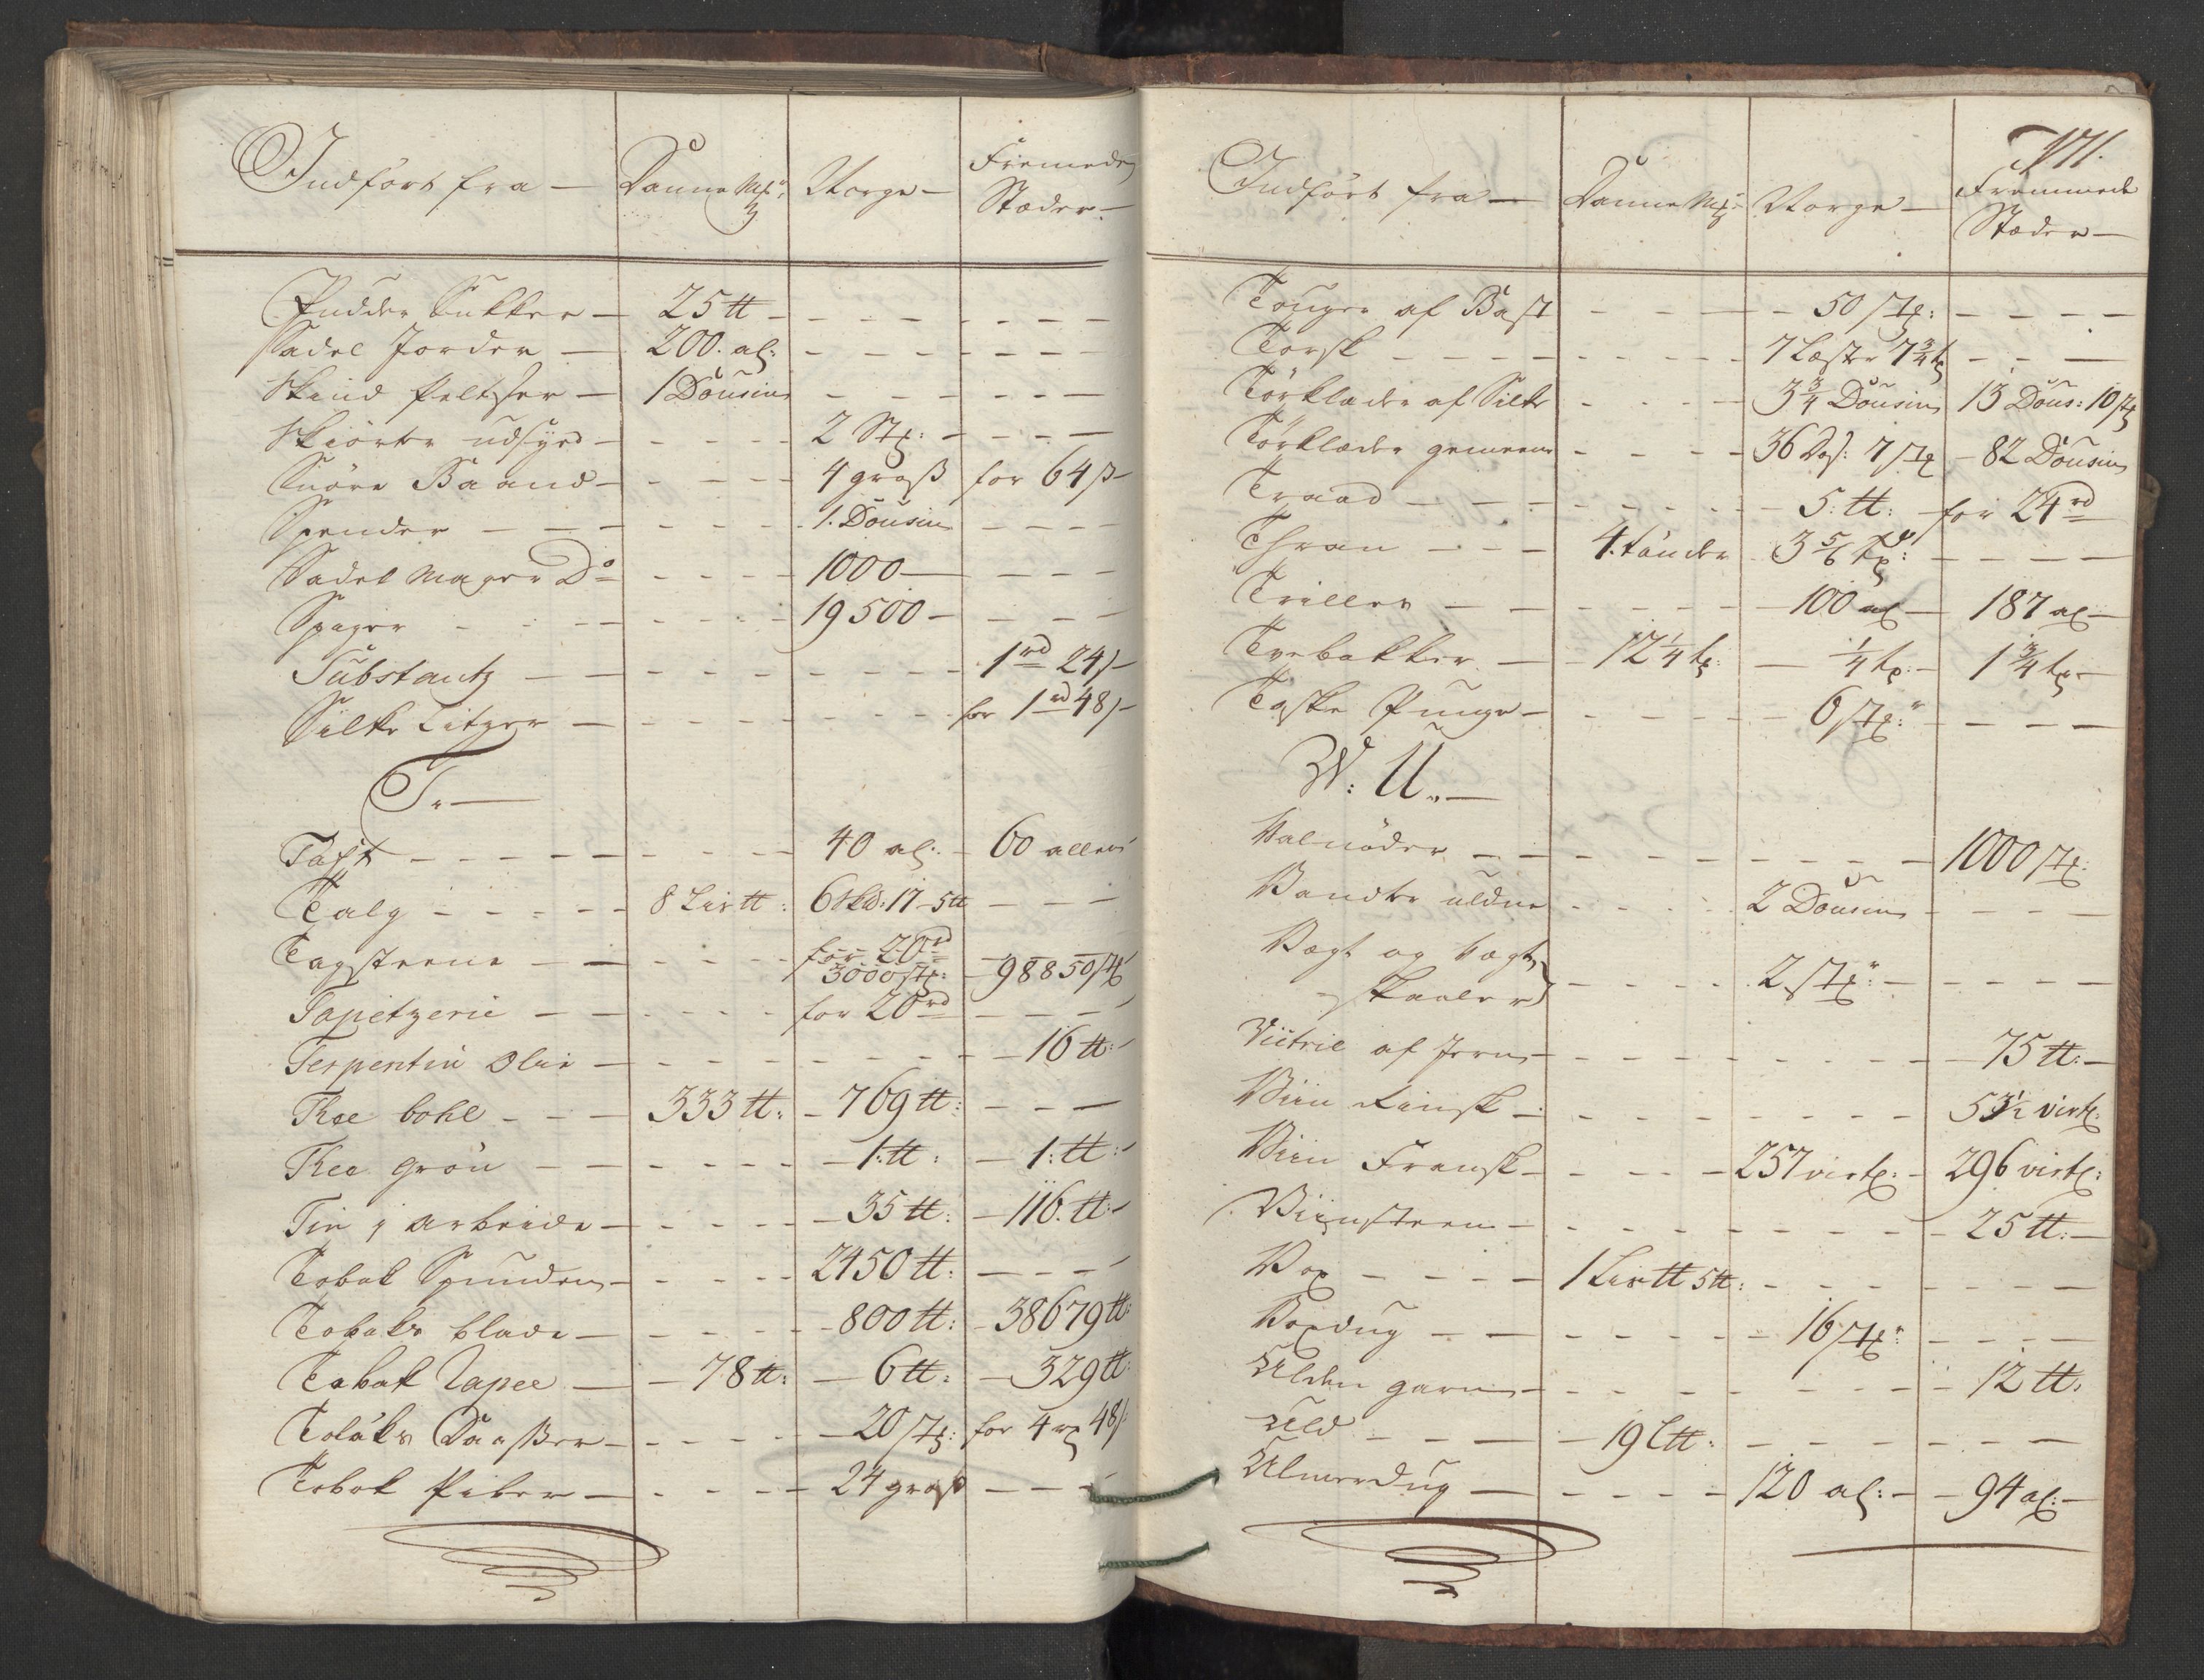 Indført fra — Danne Mk: Norge — Fremede
Stæder —
Pudder Sukker — 25 tt — — — — — — —
Sadel Jorder — 200. al: — — — — — —
Skind Peltzer — 1 Dousin — — — — — —
Skiorter udsyed — — — — 2 Stk: — — — —
Snöre Baand — — — — 4 gross for 64 s —
Spender — — — — — — 1. Dousin — — — —
Sadelmager Do — — — — 1000 — — — —
Spiger — — — — — — 19500 — — — —
Substantz — — — — — — — 1 rd 24 s —
Silke Litzer — — — — — — — for 1 rd 48 s —
T. —
Taft — — — — — — — 40 al: — 60 allen
Talg — — — — — 8 Lis tt: 6 Skd: 17 — 5 tt — — —
Tagsteene — — — — — for 20 rd
3000 stk: — 98850 stk
Tapetzerie — — — — — for 20 rd — — — —
Terpentin Olie — — — — — — — 16 tt:
Thee bohe — — — 333 tt: — 769 tt: — — —
Thee grön — — — — — — 1: tt: — 1: tt:
Tin j arbeide — — — — — 35 tt: — 116. tt:
Tobak Spunden — — — — 2450 tt: — — —
Tobaks blade — — — — — 800 tt: — 38679 tt:
Tobak Rapee — — 78 tt: — 6 tt: — 329 tt:
Tobaks Daasser — — — — — 20 stk: for 4 rd 48 s
Tobak Piber — — — — — 24 gross — — —
171.
Indført fra — Danne Mk: Norge — Fremmede
Stæder —
Touger af Bast — — — — 50 stk: — — — —
Torsk — — — — — — — 7 Læster 7 3/4 t — — —
Törklæder af Silke — — — 3 3/4 Dousin 13 Dous: 10 stk
Törklæder gemeene — — — — 36 Dos: 7 stk — 82 Dousin
Traad — — — — — — — 5: tt: — for 24 rd
Thran — — — 4. tönder 3 5/6 td: — — — —
Triller — — — — — — 100 al — 187 al —
Tvebakker — — 12 1/4 td: — 1/4 td: — 1 3/4 td: —
Taske Punge — — — — — 6 stk: — — —
W: U. —
Valnöder — — — — — — — — 1000 stk:
Vandter uldne — — — — 2 Dousin — — — —
Vægt og Vægt
skaaler — — — — 2 stk: — — — — —
Victril af Jern — — — — — — — 75 tt: —
Viin Rinsk — — — — — — — 5 1/2 virtl:
Viin Fransk — — — — 257 virtl: — 296 virtl:
Viinsteen — — — — — — — 25 tt: —
Vox — — — — 1 Lis tt 5 tt: — — — — — —
Voxdug — — — — — — 16 stk: — — — —
Ulden garn — — — — — — — 12 tt:
Uld — — — — 19 L tt: — — — — — — —
Ulmerdug — — — — — 120 al: — — 94 al: —